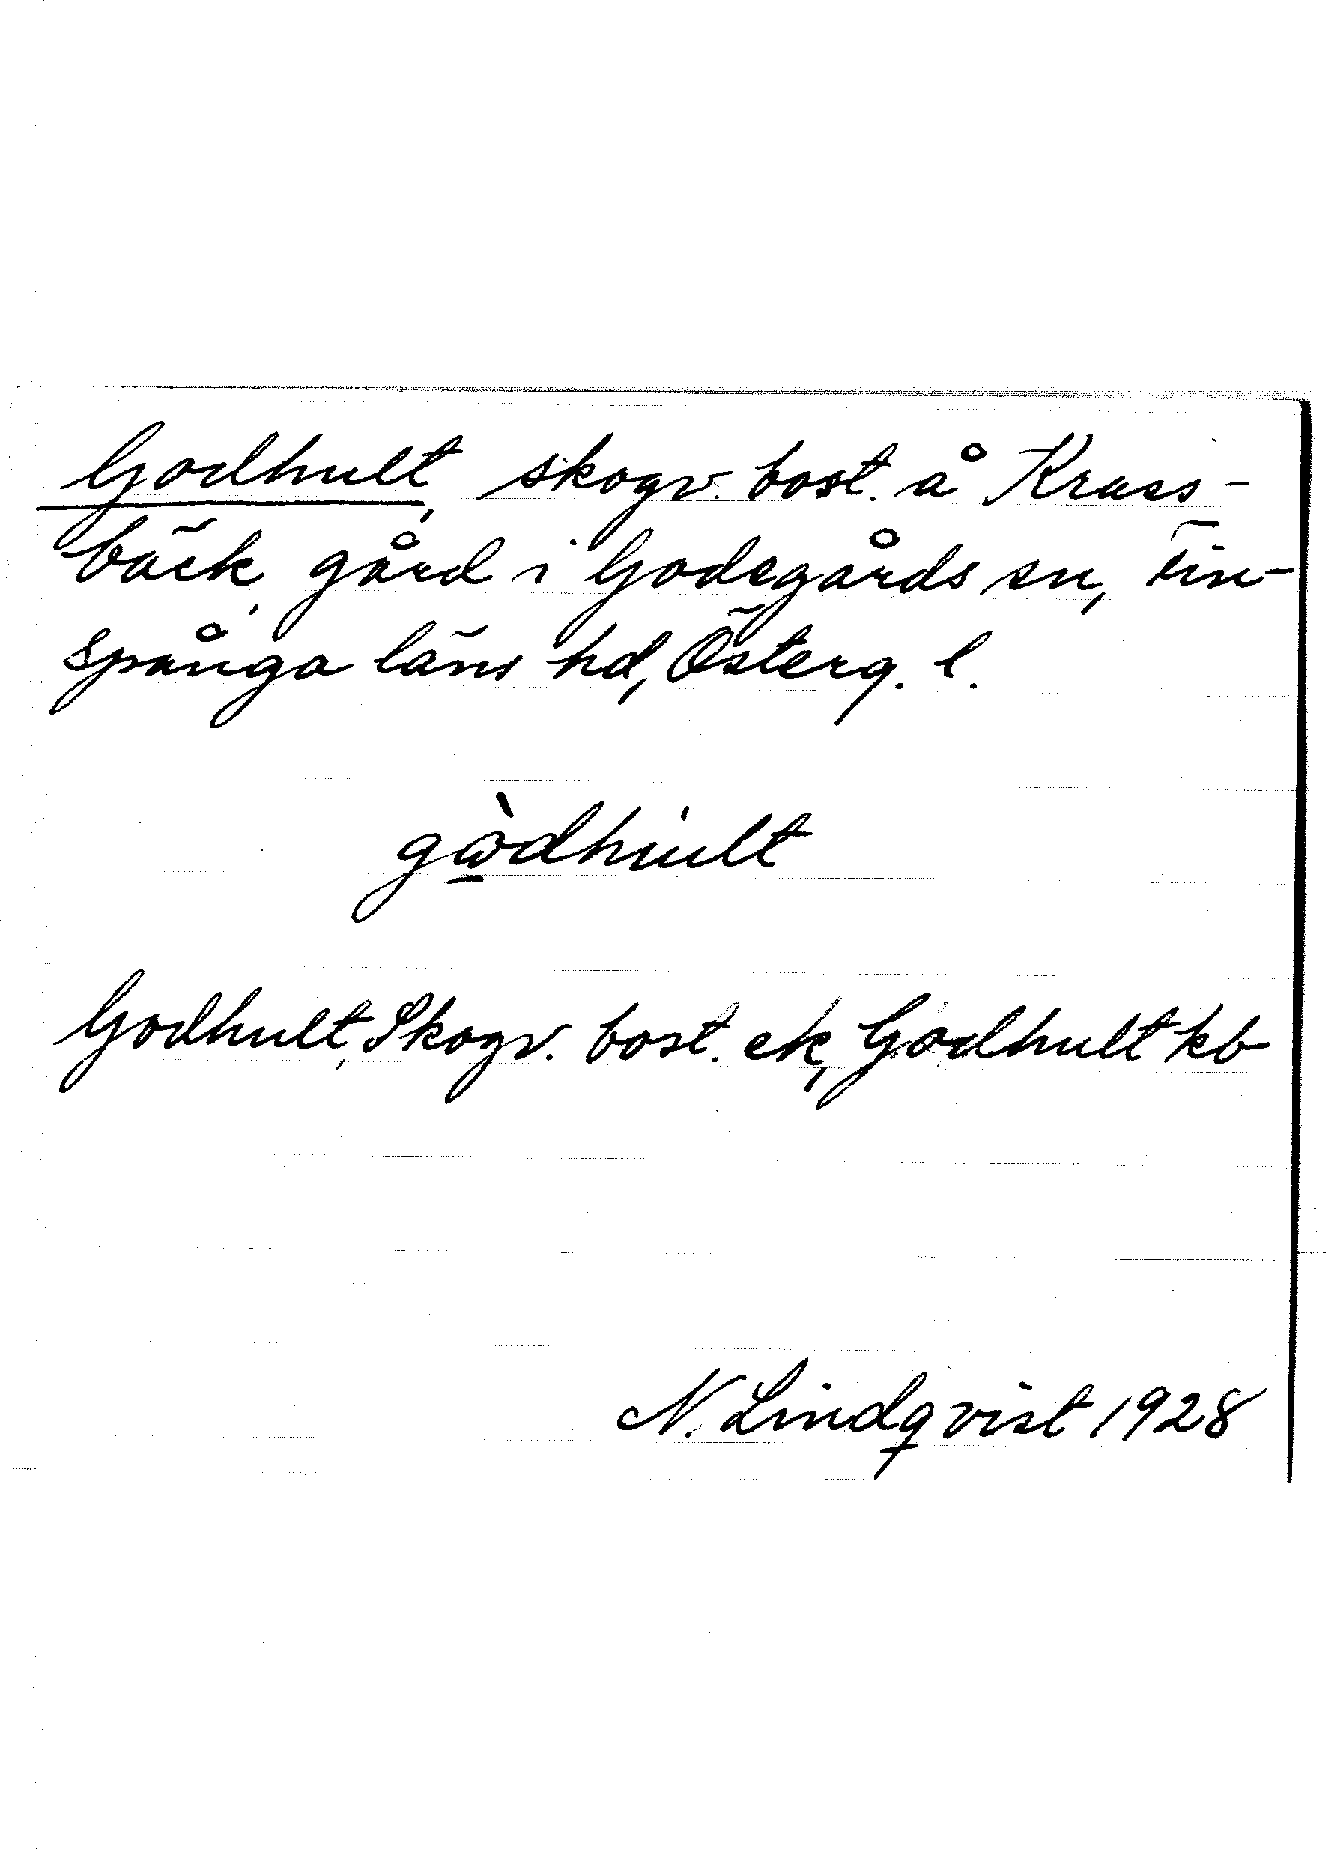 Godhult, skogv. bost. å Krass-
bäck, gård i Godegårds sn, Fin-
spånga läns hd, Österg. l.
gὼ̲dhúlt
Godhult, Skogv. bost. ek, Godhult kb
N. Lindqvist 1928